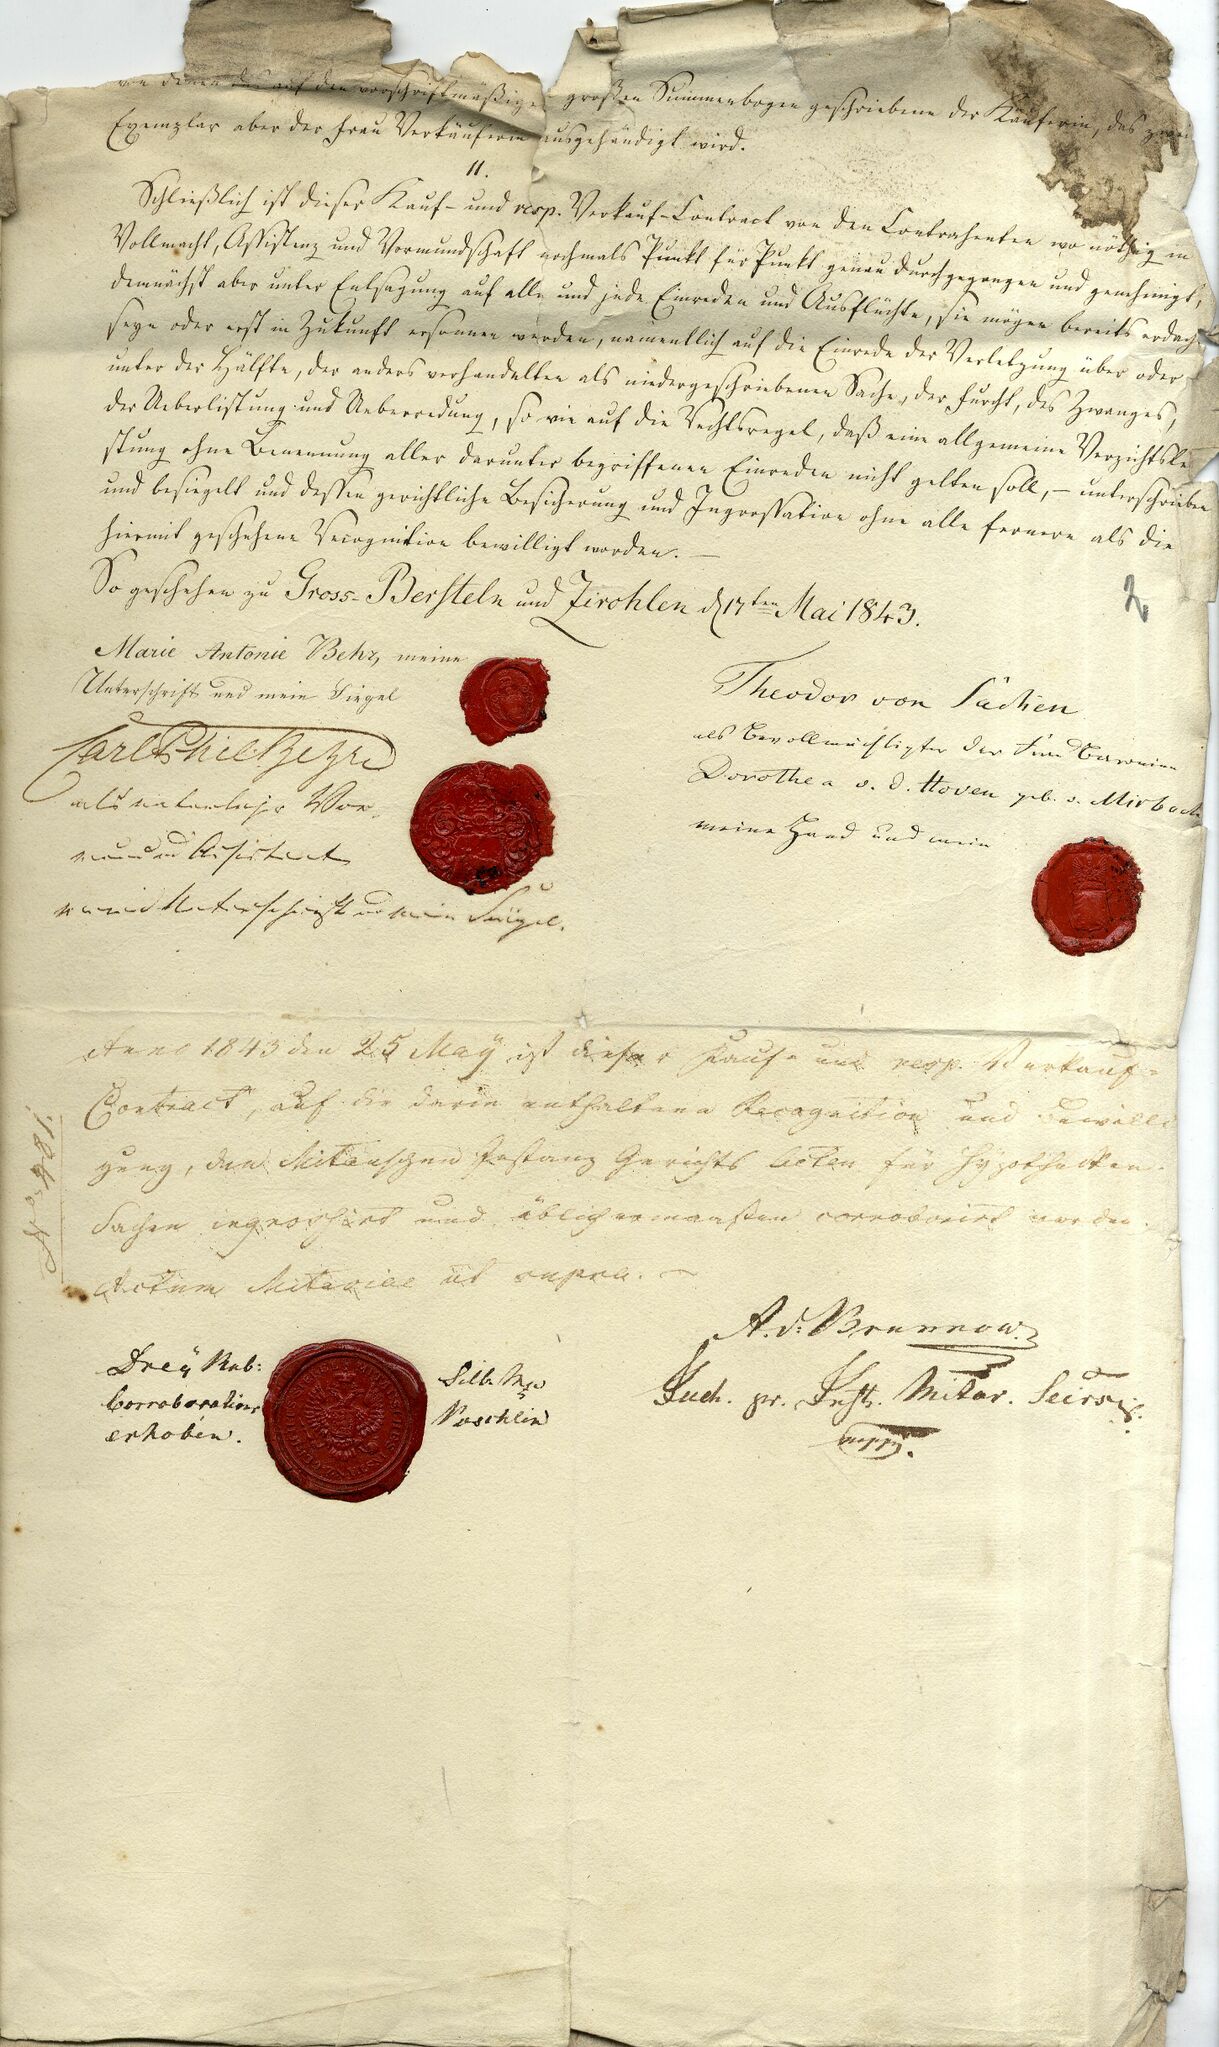 von denen das auf den vorschriftmäßigen großen Summenbogen geschriebene der Käuferin, das zwei
Exemplar aber der Frau Verkäuferin ausgehändigt wird.
11.
Schließlich ist dieser Kauf- und resp. Verkauf-Contract von den Contrahenten wo nöthig in
Vollmacht, Assistenz und Vormundschaft nochmals Punkt für Punkt genau durchgegangen und genehmigt,
demnächst aber unter Entsagung auf alle und jede Einreden und Ausflüchte, sie mögen bereits erdacht
seyn oder erst in Zukunft ersonnen werden, namentlich auf die Einrede der Verletzung über oder
unter der Hälfte, der anders verhandelten als niedergeschriebenen Sache, der Furcht, des Zwanges,
der Ueberlistung und Ueberredung, so wie auf die Rechtsregel, daß eine allgemeine Verzichtslei
stung ohne Benennung aller darunter begriffenen Einreden nicht gelten soll, – unterschrieben
und besiegelt und dessen gerichtliche Besicherung und Ingrossation ohne alle fernere als die
hiermit geschehene Recognition bewilligt worden. –
So geschehen zu Gross-Bersteln und Zirohlen d 17ten Mai 1843.
2
Marie Antonie Behr, meine
Unterschrift und mein Siegel
Carl Phil Behr
als natürlicher Vor-
mund und Assistent
meine Unterschrift und mein Siegel.
Theodor von Sacken
als Bevollmächtigter der Frau Baronin
Dorothea v. d. Hoven geb. v. Mirbach
meine Hand und mein
Anno 1843 den 25 May ist dieser Kauf- und resp. Verkauf-
Contract, auf die darin enthaltene Recognition und Bewilli
gung, den Mitauschen Instanz Gerichts Acten für Hypotheken-
Sachen ingrossirt und üblichermaaßen corroborirt worden.
Actum Mitaviae ut supra. –
A. v. Brunnow
Jud. pr. Inst. Mitav. Secrs.
mppr.
Dreÿ Rub: Silb. Mze
Corroborations Poschlin
erhoben.